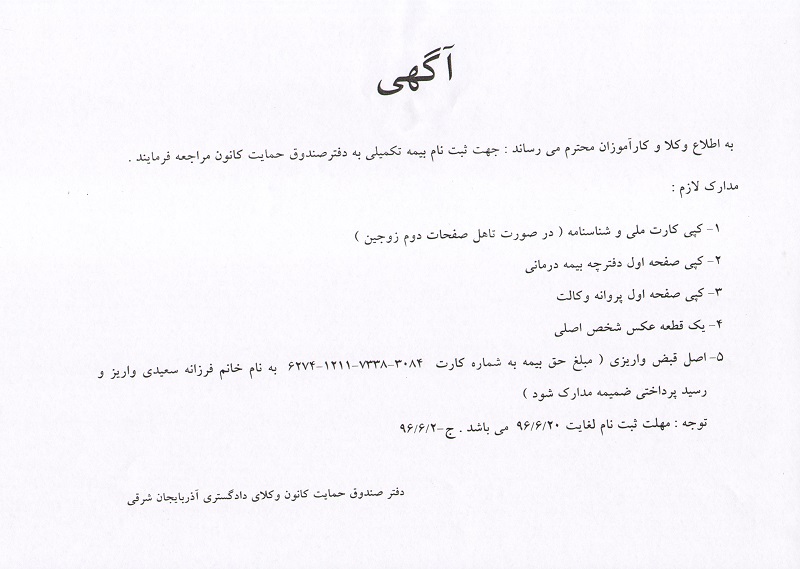 آگهی
به اطلاع وکلا و کارآموزان محترم می رساند : جهت ثبت نام بیمه تکمیلی به دفترصندوق حمایت کانون مراجعه فرمایند .
مدارک لازم :
۱- کپی کارت ملی و شناسنامه ( در صورت تاهل صفحات دوم زوجین )
۲- کپی صفحه اول دفترچه بیمه درمانی
۳- کپی صفحه اول پروانه وکالت
۴- یک قطعه عکس شخص اصلی
۵- اصل قبض واریزی ( مبلغ حق بیمه به شماره کارت ۳۰۸۴-۷۳۳۸-۱۲۱۱-۶۲۷۴ به نام خانم فرزانه سعیدی واریز و
رسید پرداختی ضمیمه مدارک شود )
توجه : مهلت ثبت نام لغایت ۹۶/۶/۲۰ می باشد . ج-۹۶/۶/۲
دفتر صندوق حمایت کانون وکلای دادگستری آذربایجان شرقی